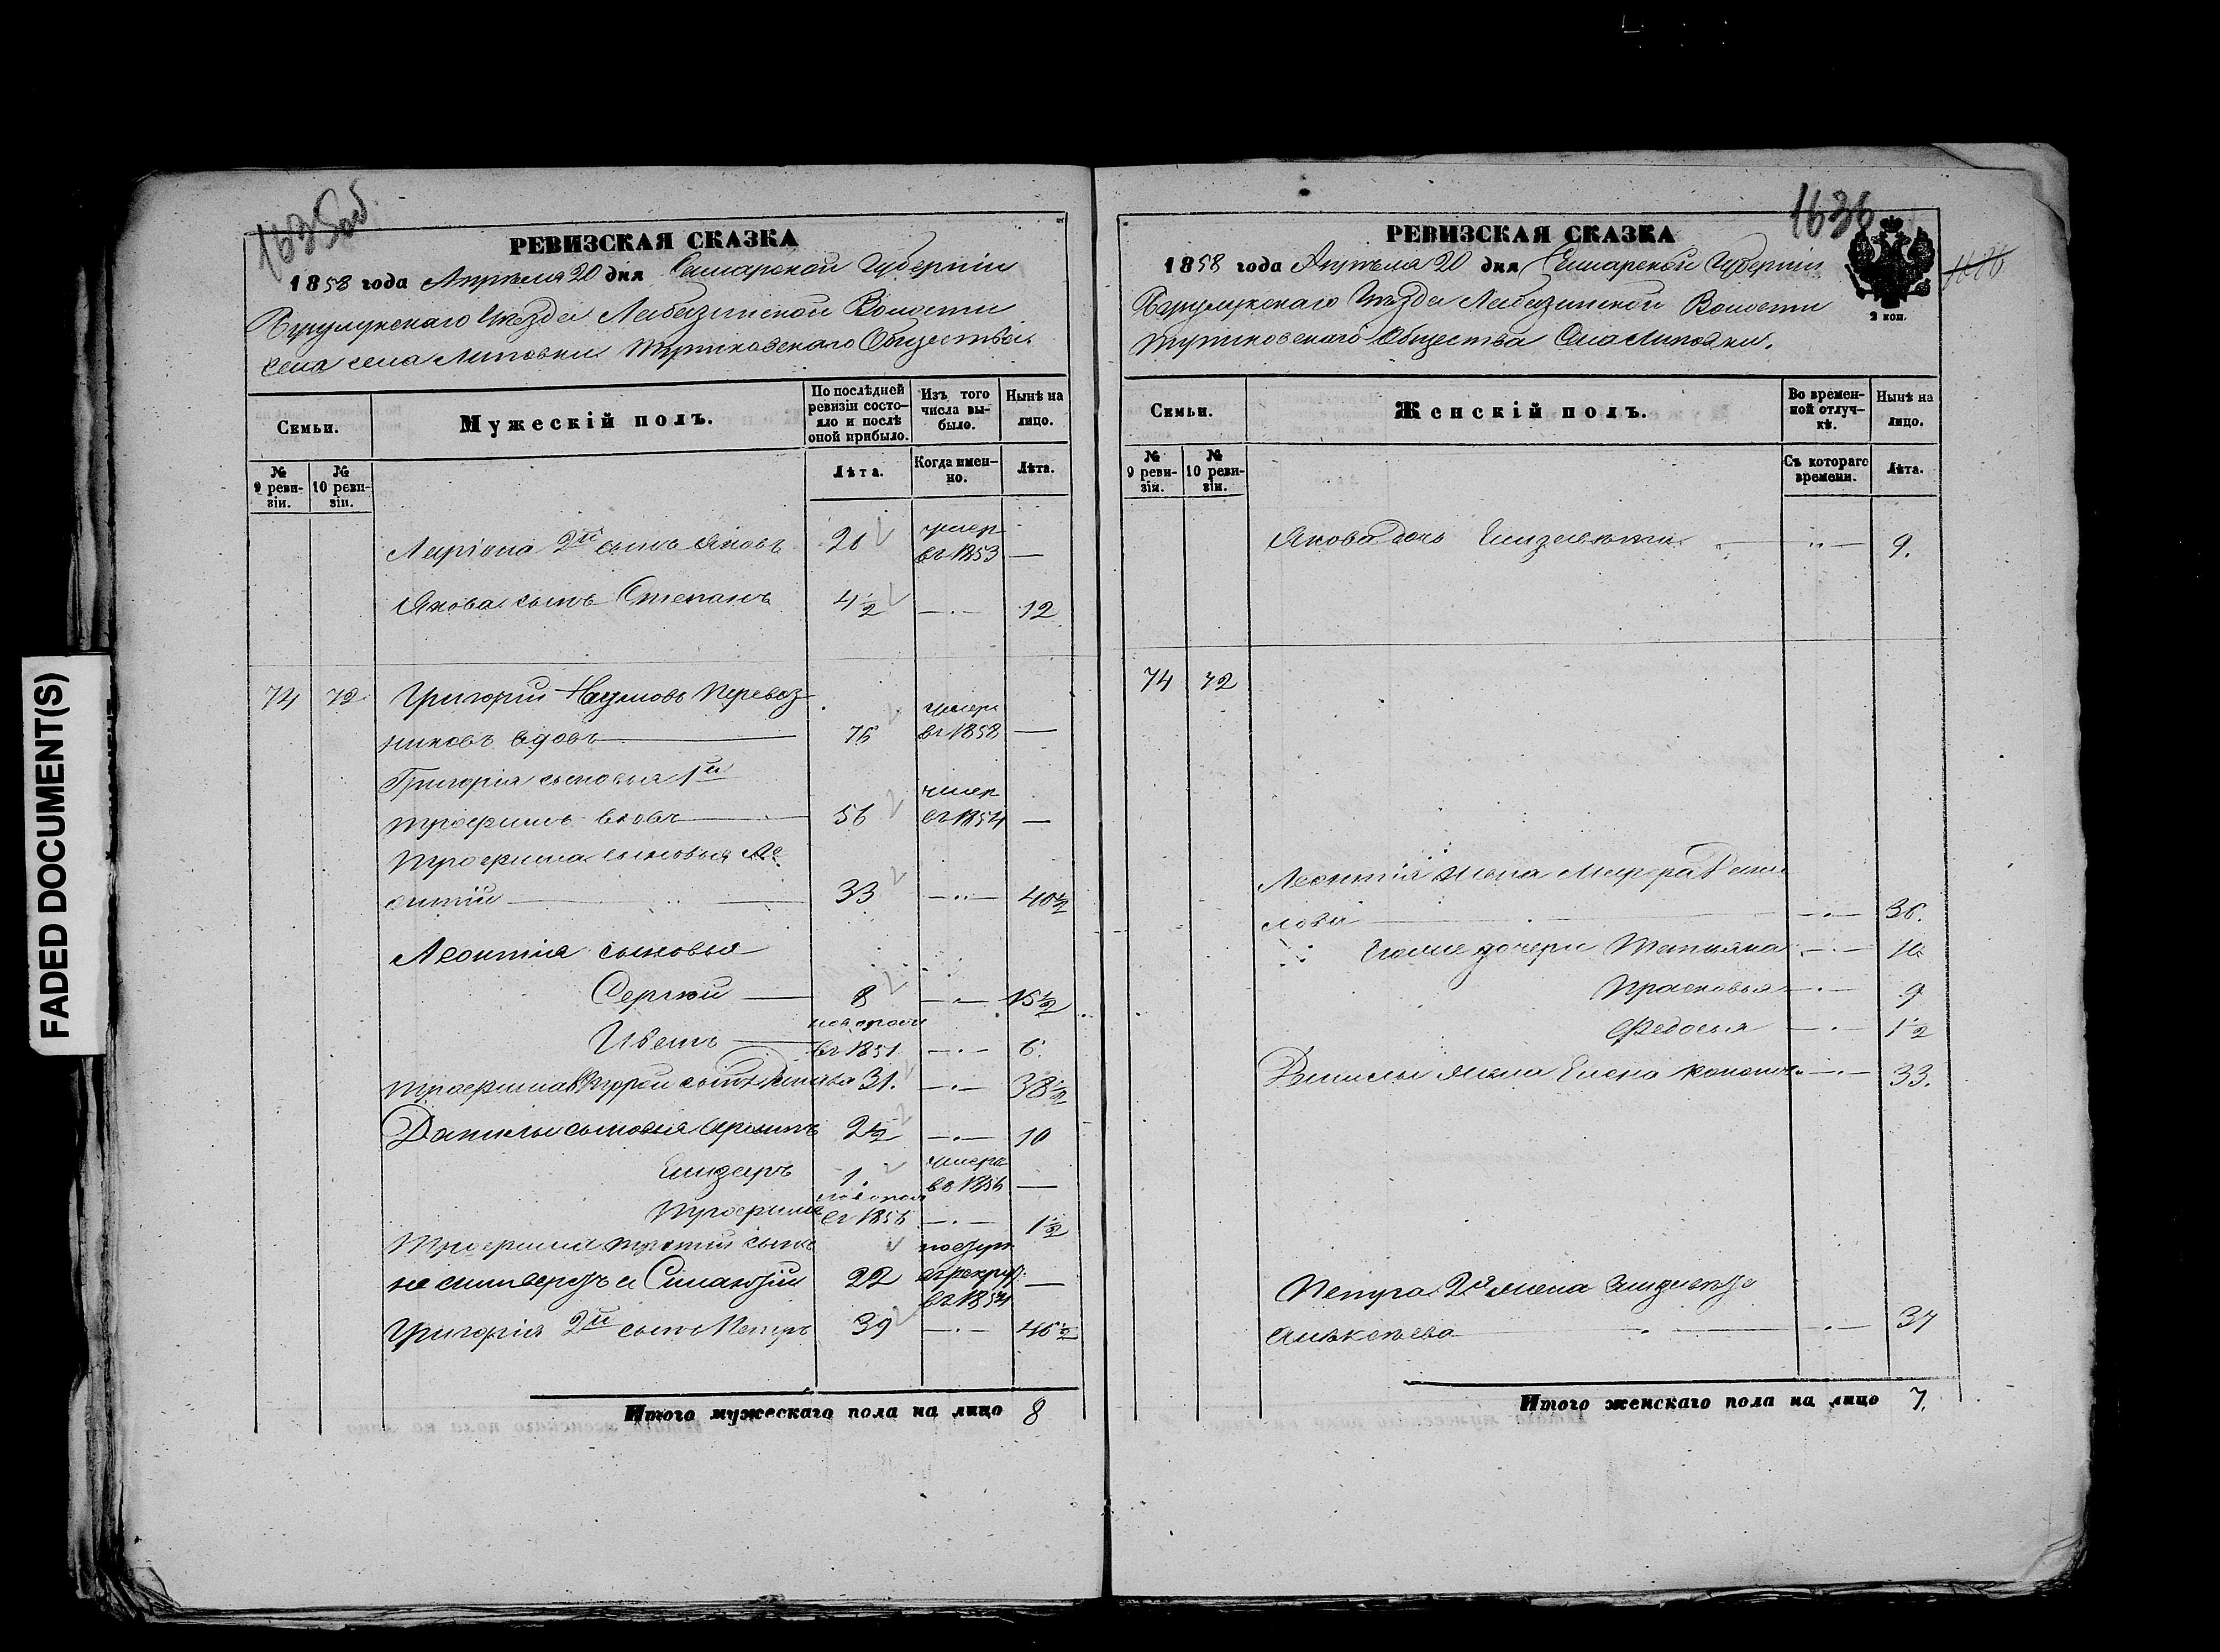 FADED DOCUMENT(S)
1635об.
РЕВИЗСКАЯ СКАЗКА
1858 года Апрѣля 20 дня Самарской Губерніи
Бузулукскаго Уѣзда Лабазинской Волости
села Липовки Общества
По послѣдней ревизіи состояло и послѣ оной прибыло.
Изъ того числа выбыло.
Нынѣ на лицо.
Семьи.
Мужескій полъ.
№ 9 ревизіи.
№ 10 ревизіи.
Лѣта.
Когда именно.
Лѣта.
умер
Ларіона 2й сынъ Яковъ 26 въ 1853 —
Якова сынъ Степанъ 4½ —·— 12
74 72 Григорій Наумовъ Перевоз
умеръ
никовъ вдовъ 76 въ 1858 —
Григорія сыновья 1й
умер
Трофимъ вдовъ 56 въ 1854 —
Трофима сыновья Ле
онтій 33 —··— 40½
Леонтія сыновья
Сергѣй 8 —·— 15½
новорож
Иветъ въ 1851 —·— 6.
Трофима второй сынъ Данила 31. —·— 38½
Данилы сыновья 2½ —·— 10
умеръ
Елизаръ 1. въ 1856 —
новорож
Трофимъ въ 1856 —·— 1½
Трофима третій сынъ поступ.
22 въ рекрут. —
въ 1854
Григорія 2й сынъ Петръ 39 —·— 46½
Итого мужескаго пола на лицо 8
1636
РЕВИЗСКАЯ СКАЗКА
1858 года Апрѣля 20 дня Самарской Губерніи
2 коп.
Бузулукскаго Уѣзда Лабазинской Волости
Общества Села Липовки.
Семьи.
Женскій полъ.
Во временной отлучкѣ.
Нынѣ на лицо.
№ 9 ревизіи.
№ 10 ревизіи.
Съ котораго времени.
Лѣта.
Якова дочь Елизавета —··— 9.
74 72
Леонтія жена Марфа Дани
лова —·— 36.
дочери Татьяна —·—
Прасковья —·— 9
Федосья —·— 1½
Данилы жена Елена —·— 33.
Петра 2я жена Елизавета
Алексѣева —·— 37
Итого женскаго пола на лицо 7.